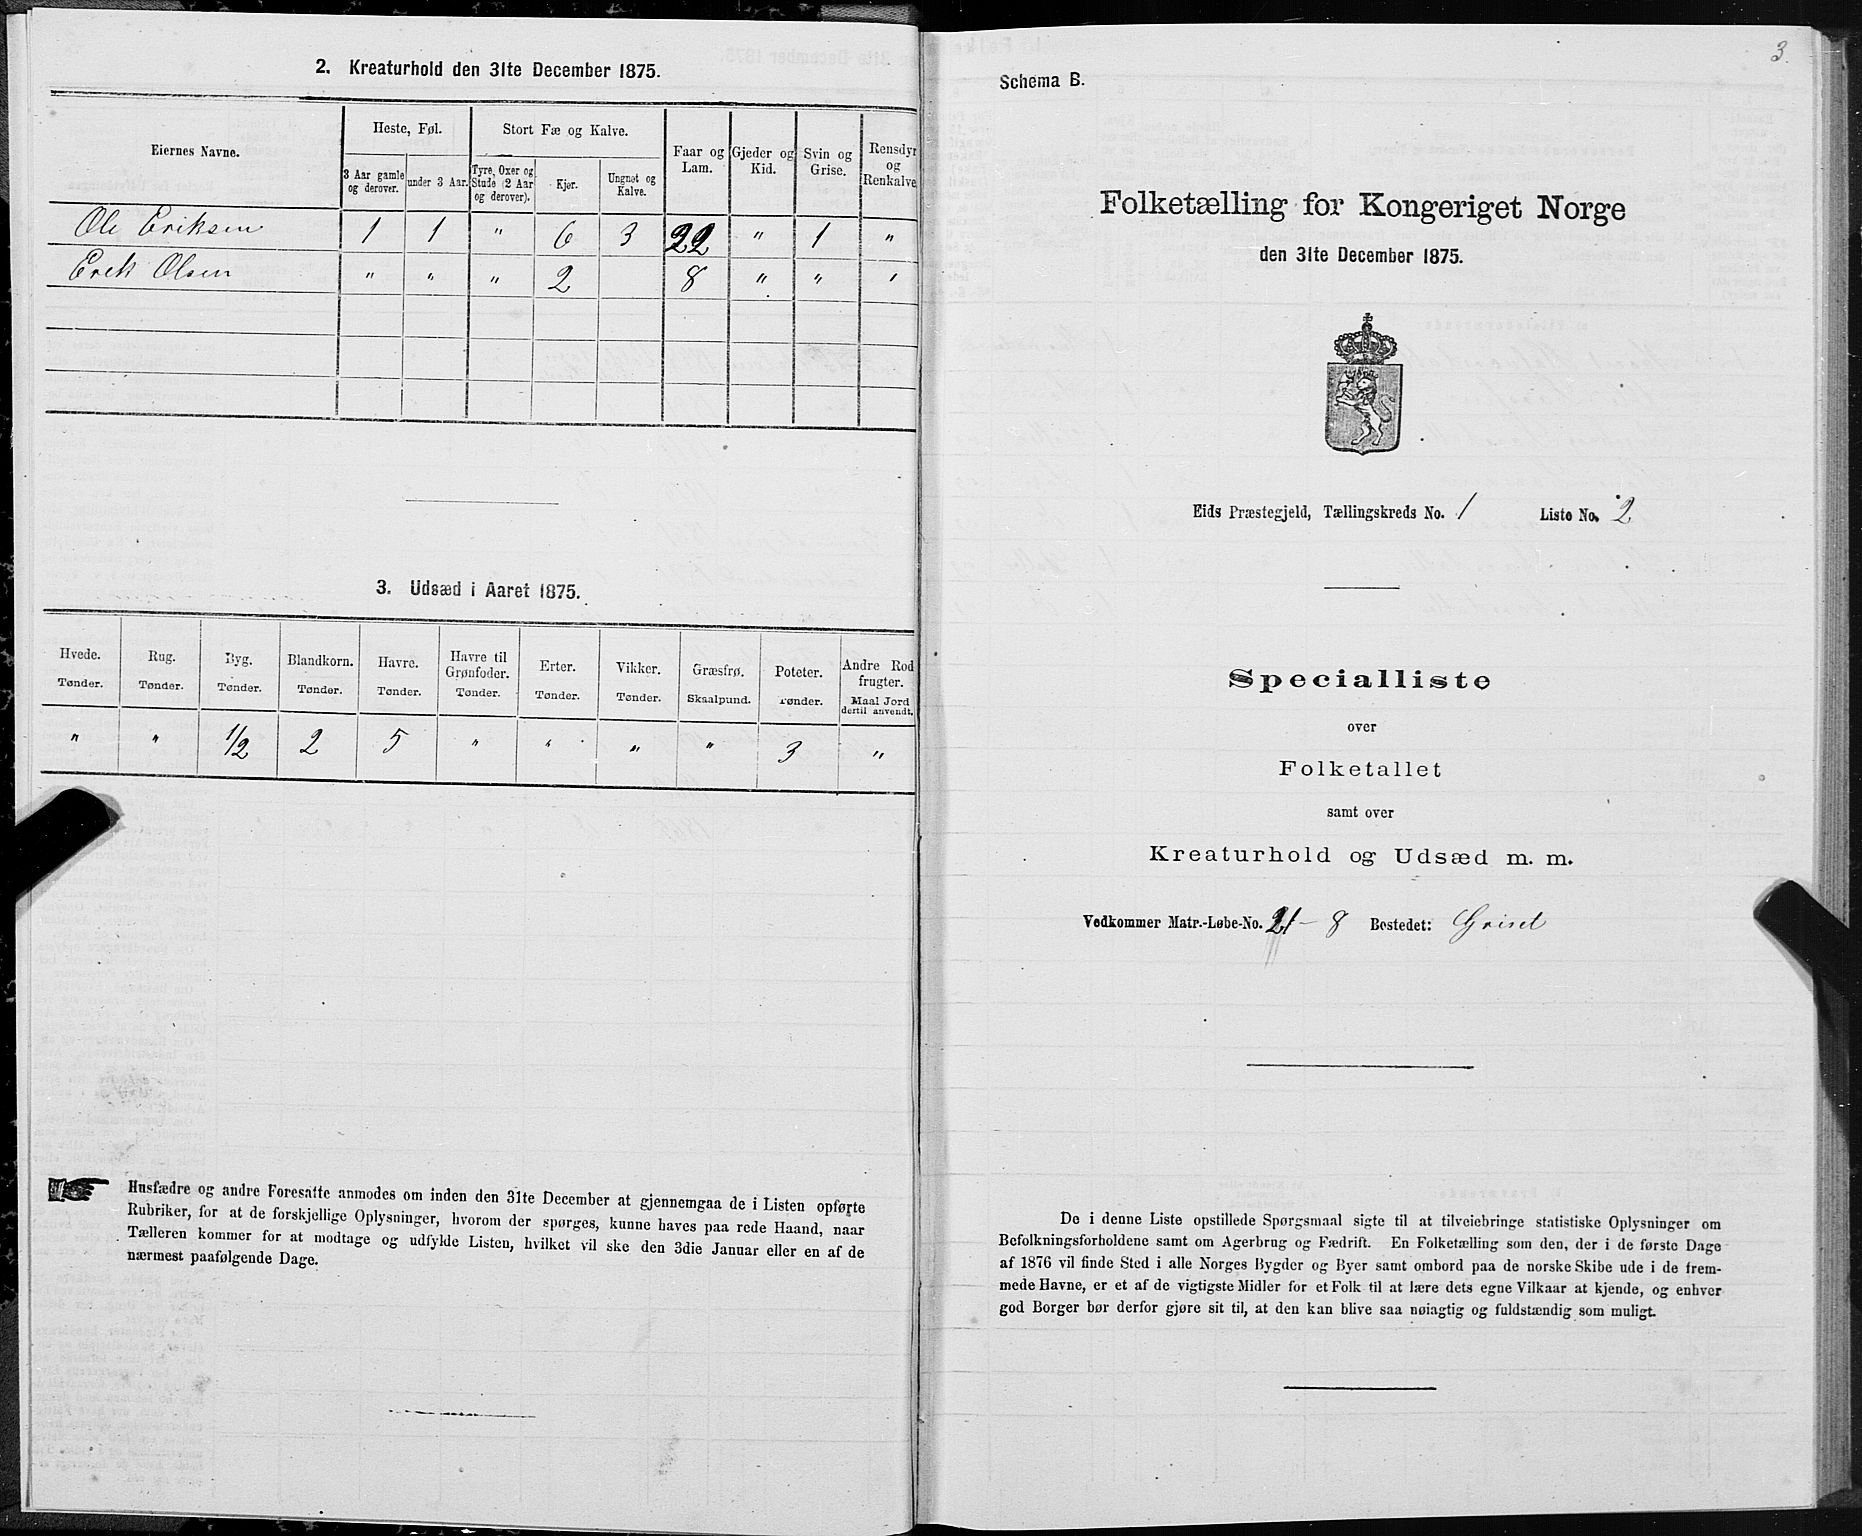 2. Kreaturhold den 31te December 1875.
Eiernes Navne.
Heste, Føl.
Stort Fæ og Kalve.
Faar og Lam.
Gjeder og Kid.
Svin og Grise.
Rensdyr og Renkalve
3 Aar gamle og derover.
under 3 Aar.
Tyre, Oxer og Stude (2 Aar og derover).
Kjør.
Ungnøt og Kalve.
Ole Eriksen 1 1 " 6 3 22 " 1 "
Erik Olsen " " " 2 8 " " "
3. Udsæd i Aaret 1875.
Hvede. Rug. Byg. Blandkorn. Havre. Havre til Grønfoder. Erter. Vikker. Græsfrø. Poteter. Andre Rodfrugter.
Tønder. Tønder. Tønder. Tønder. Tønder. Tønder. Tønder. Tønder. Skaalpund. Tønder. Maal Jord dertil anvendt.
" " 1/2 2 5 " " " " 3 "
Husfædre og andre Foresatte anmodes om inden den 31te December at gjennemgaa de i Listen opførte
Rubriker, for at de forskjellige Oplysninger, hvorom der spørges, kunne haves paa rede Haand, naar
Tælleren kommer for at modtage og udfylde Listen, hvilket vil ske den 3die Januar eller en af de
nærmest paafølgende Dage.
3.
Schema B.
Folketælling for Kongeriget Norge
den 31te December 1875.
Eids Præstegjeld, Tællingskreds No. 1 Liste No. 2
Specialliste
over
Folketallet
samt over
Kreaturhold og Udsæd m. m.
Vedkommer Matr.-Løbe-No. 21 - 8 Bostedet:
De i denne Liste opstillede Spørgsmaal sigte til at tilveiebringe statistiske Oplysninger om
Befolkningsforholdene samt om Agerbrug og Fædrift. En Folketælling som den, der i de første Dage
af 1876 vil finde Sted i alle Norges Bygder og Byer samt ombord paa de norske Skibe ude i de frem-
mede Havne, er et af de vigtigste Midler for et Folk til at lære dets egne Vilkaar at kjende, og enhver
god Borger bør derfor gjøre sit til, at den kan blive saa nøiagtig og fuldstændig som muligt.